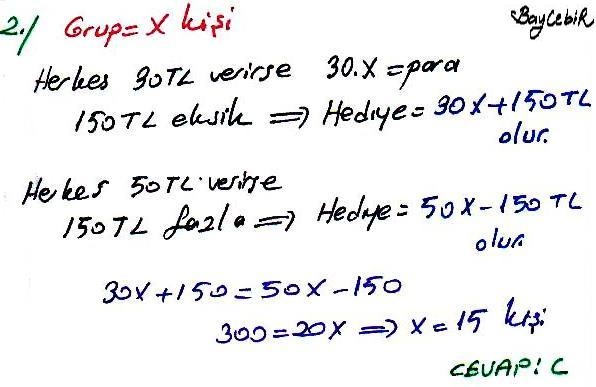 2./ Grup= X kişi
BayCebiR
Herkes 30TL verirse 30.X =para
150TL eksik => Hediye= 30X+150TL
olur.
Herkes 50TL verirse
150TL fazla => Hediye= 50X-150 TL
olur
30X+150=50X-150
300=20X => X=15 kişi
CEVAP: C